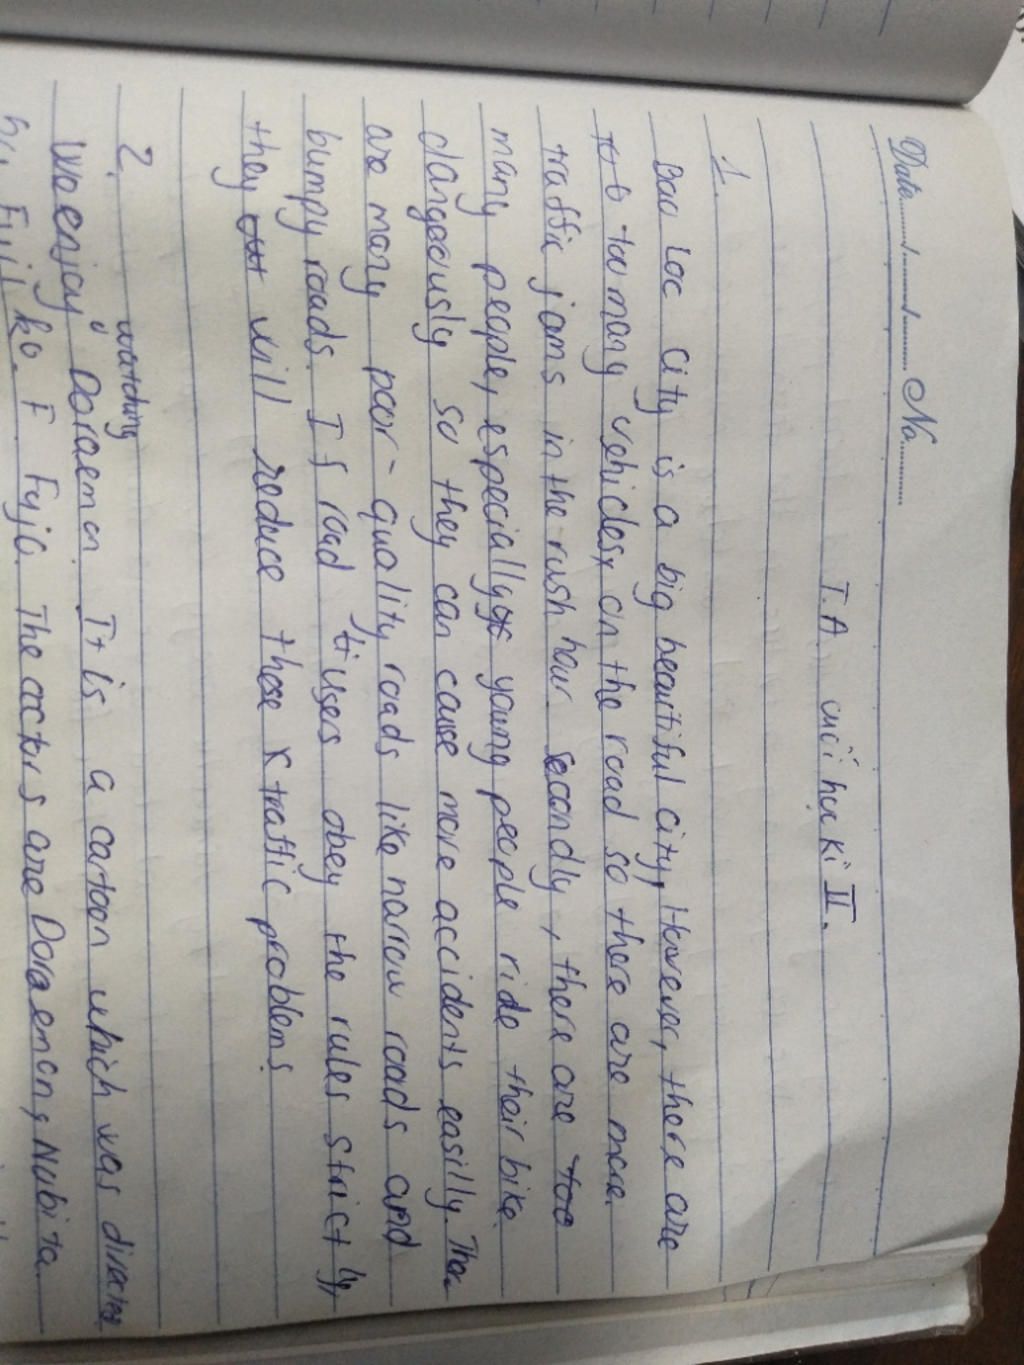 Date....../....../...... No..........
T.A cuối học kì II.
1.
Bao Loc city is a big beautiful city, However, there are
too many vehicles, on the road so there are more
traffic jams in the rush hour. Secondly, there are too
many people, especially young people ride their bike
dangeously so they can cause more accidents easilly. There
are many poor-quality roads like narrow roads and
bumpy roads. If road users obey the rules strictly,
they will reduce those traffic problems.
2.
We enjoy watching Doraemon. It is a cartoon which was directing
by Fujiko. F Fujo. The actors are Doraemon, Nobita.